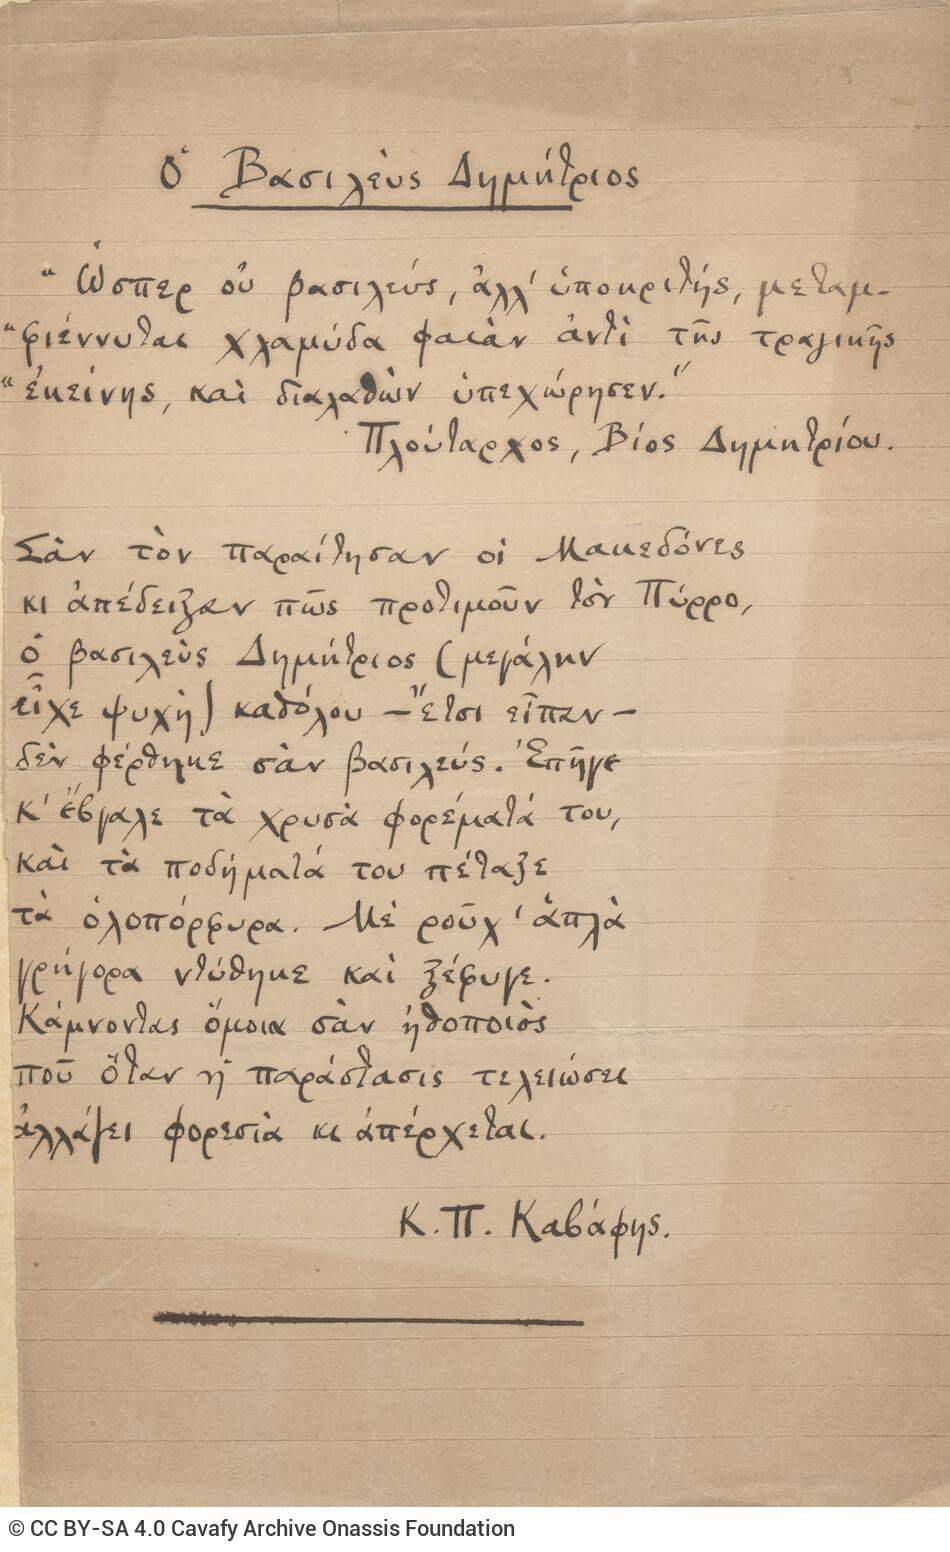 Ὁ Βασιλεὺς Δημήτριος
“ Ὥσπερ οὐ βασιλεύς, ἀλλ’ ὑποκριτής, μεταμ-
“ φιέννυται χλαμύδα φαιὰν ἀντὶ τῆς τραγικῆς
“ ἐκείνης, καὶ διαλαθὼν ὑπεχώρησεν.”
Πλούταρχος, Βίος Δημητρίου.
Σὰν τὸν παραίτησαν οἱ Μακεδόνες
κι ἀπέδειξαν πῶς προτιμοῦν τὸν Πύρρο,
ὁ βασιλεὺς Δημήτριος (μεγάλην
εἶχε ψυχὴ) καθόλου — ἔτσι εἶπαν —
δὲν φέρθηκε σὰν βασιλεύς. Ἐπῆγε
κ’ ἔβγαλε τὰ χρυσὰ φορέματά του,
καὶ τὰ ποδήματά του πέταξε
τὰ ὁλοπόρφυρα. Μὲ ροῦχ’ ἁπλὰ
γρήγορα ντύθηκε καὶ ξέφυγε.
Κάμνοντας ὅμοια σὰν ἠθοποιὸς
ποῦ ὅταν ἡ παράστασις τελειώσει
ἀλλάζει φορεσιὰ κι ἀπέρχεται.
Κ. Π. Καβάφης.
© CC BY-SA 4.0 Cavafy Archive Onassis Foundation